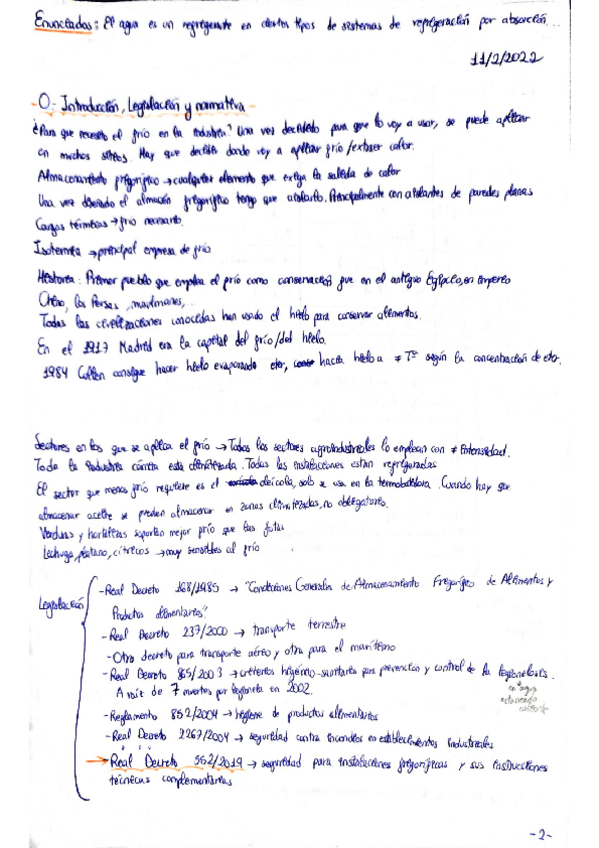 Enunciados: El agua es un refrigerante en ciertos tipos de sistemas de refrigeración por absorción...
11/2/2022
0.- Introducción, Legislación y normativa
¿Para que necesito el frío en la industria? Una vez decidido para que lo voy a usar, se puede aplicar
en muchos sitios. Hay que decidir donde voy a aplicar frío/extraer calor.
Almacenamiento frigorífico → cualquier elemento que exija la salida de calor
Una vez diseñado el almacén frigorífico tengo que aislarlo. Principalmente con aislantes de paredes planas
Cargas térmicas → frío necesario.
Isotermia → principal empresa de frío
Historia: Primer pueblo que emplea el frío como conservación fue en el antiguo Egipcio, en imperio
Chino, los Persas, musulmanes,..
Todas las civilizaciones conocidas han usado el hielo para conservar alimentos.
En el 1917 Madrid era la capital del frío/del hielo.
1984 Cullen consigue hacer hielo evaporando eter, hacía hielo a ≠ Tª según la concentración de eter.
Sectores en los que se aplica el frío → Todos los sectores agroindustriales lo emplean con ≠ intensidad.
Toda la industria cárnica esta climatizada. Todas las instalaciones estan refrigeradas
El sector que menos frío requiere es el oleícola, solo se usa en la termobatidora. Cuando hay que
almacenar aceite se pueden almacenar en zonas climatizadas, no obligatorio.
Verduras y hortalizas soportan mejor frío que las frutas
Lechuga, plátano, cítricos → muy sensibles al frío
Legislación
- Real Decreto 168/1985 → "Condiciones Generales de Almacenamiento Frigorífico de Alimentos y
Productos alimentarios"
- Real Decreto 237/2000 → transporte terrestre
- Otro decreto para transporte aéreo y otra para el marítimo
- Real Decreto 865/2003 → criterios higiénico-sanitarios para prevención y control de la legionelosis.
A raíz de 7 muertos por legionela en 2002.
en agua
estancada
caliente
- Reglamento 852/2004 → higiene de productos alimentarios
- Real Decreto 2267/2004 → seguridad contra incendios en establecimientos industriales
→ Real Decreto 552/2019 → seguridad para instalaciones frigoríficas y sus instrucciones
técnicas complementarias
-2-